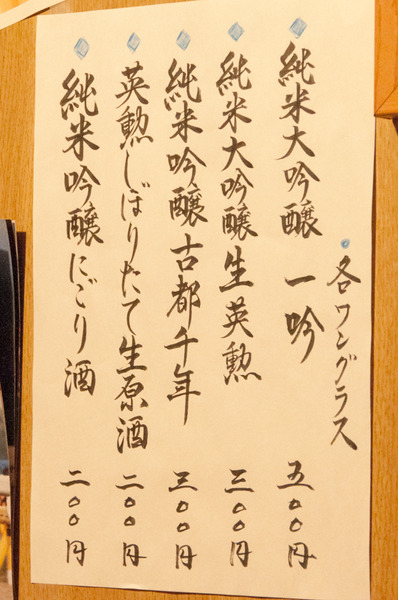 各ワングラス
純米大吟醸 一吟 五〇〇円
純米大吟醸生英勲 三〇〇円
純米吟醸古都千年 三〇〇円
英勲しぼりたて生原酒 二〇〇円
純米吟醸にごり酒 二〇〇円